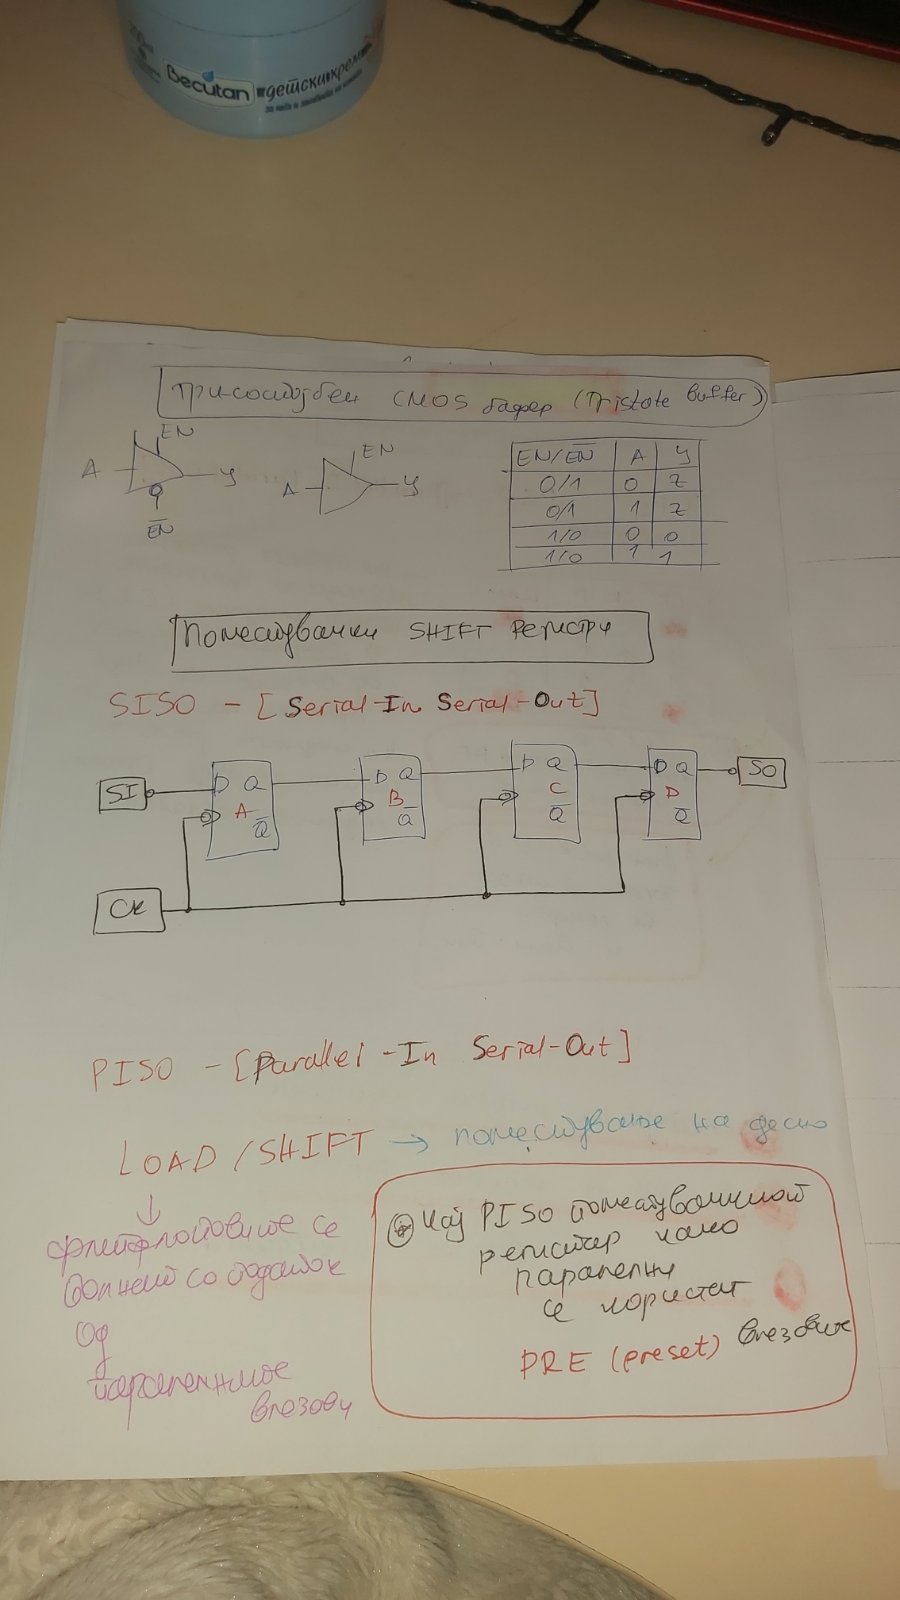 Becutan
детски крем
Трисостојбен CMOS бафер (Tristate buffer)
EN
A
Y
EN
EN
A
Y
EN/EN A Y
0/1 0 Z
0/1 1 Z
1/0 0 0
1/0 1 1
Поместувачки SHIFT Регистри
SISO - [Serial-In Serial-Out]
SI
D Q
A
Q
D Q
B
Q
D Q
C
Q
D Q
D
Q
SO
CK
PISO - [Parallel-In Serial-Out]
LOAD/SHIFT → поместување на десно
флипфлоповите се
полнет со податок
од
паралелните
влезови
Кај PISO поместувачкиот
регистар како
паралелни
се користат
PRE (preset) влезовите